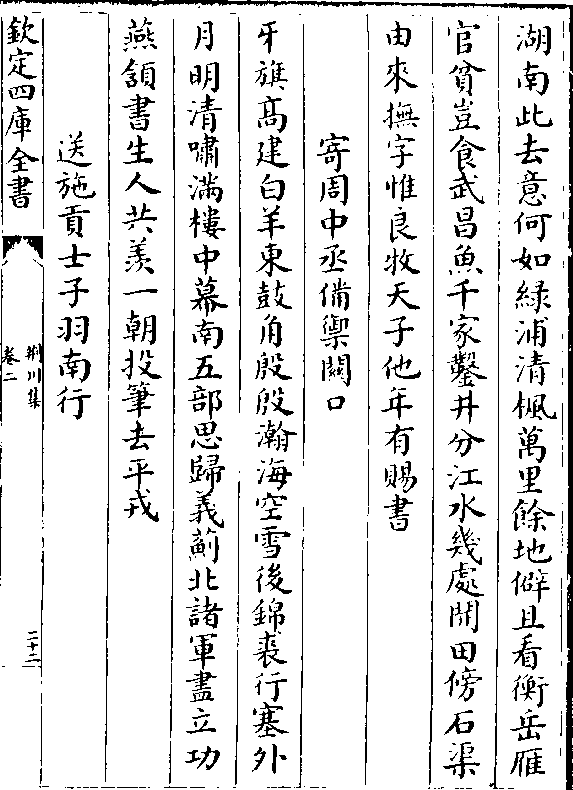 湖南此去意何如綠浦清楓萬里餘地僻且看衡岳雁
官貧豈食武昌魚千家鑿井分江水幾處開田傍石渠
由來撫字惟良牧天子他年有賜書
寄周中丞備禦關口
牙旗髙建白羊東鼓角殷殷瀚海空雪後錦裘行塞外
月明清嘯滿樓中幕南五部思歸義薊北諸軍盡立功
燕頷書生人共羨一朝投筆去平戎
送施貢士子羽南行
欽定四庫全書
荆川集
卷二
二十二